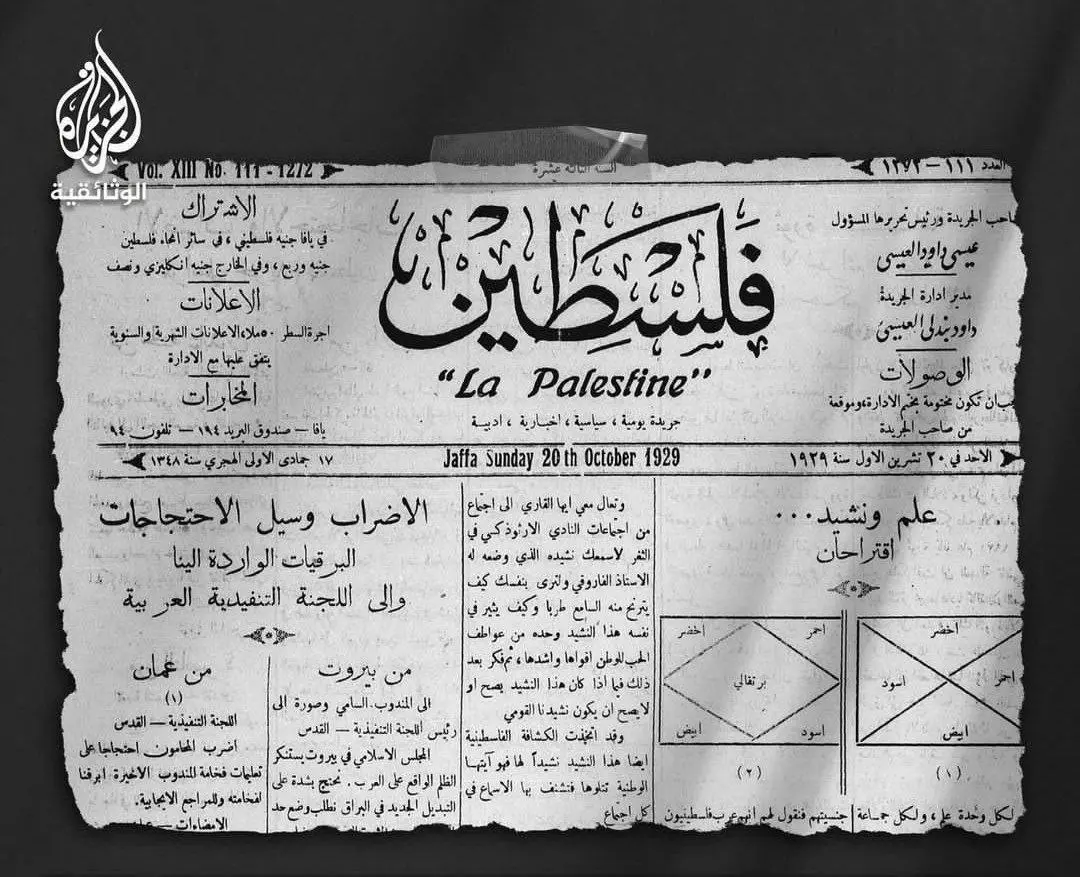 الجزيرة
الوثائقية
Vol. XIII No. 111 - 1272
السنة الثالثة عشرة
العدد ١١١ — ١٢٧٢
صاحب الجريدة ورئيس تحريرها المسؤول
عيسى داود العيسى
مدير ادارة الجريدة
داود بندلي العيسى
الوصولات
يجب ان تكون مختومة بختم الادارة، وموقعة
من صاحب الجريدة
فلسطين
"La Palestine"
جريدة يومية ، سياسية ، اخبارية ، ادبية
الاشتراك
في يافا جنيه فلسطيني ، في سائر انحاء فلسطين
جنيه وربع ، وفي الخارج جنيه انكليزي ونصف
الاعلانات
اجرة السطر ٥٠ ملا، الاعلانات الشهرية والسنوية
يتفق عليها مع الادارة
المخابرات
يافا — صندوق البريد ١٩٤ — تلفون ٩٤
الاحد في ٢٠ تشرين الاول سنة ١٩٢٩
Jaffa Sunday 20th October 1929
١٧ جمادى الاولى الهجري سنة ١٣٤٨
علم ونشيد...
اقتراحان
اخضر
احمر
اسود
ابيض
(١)
احمر
اخضر
برتقالي
اسود
ابيض
(٢)
لكل وحدة علم ، ولكل جماعة
جنسيتهم فنقول لهم انهم عرب فلسطينيون
وتعال معي ايها القاري الى اجتماع
من اجتماعات النادي الارثوذكسي في
الثغر لاسمعك نشيده الذي وضعه له
الاستاذ الفاروقي ولترى بنفسك كيف
يترنح منه السامع طربا وكيف يثير في
نفسه هذا النشيد وحده من عواطف
الحب للوطن اقواها واشدها ، ثم فكر بعد
ذلك فيما اذا كان هذا النشيد يصح او
لا يصح ان يكون نشيدنا القومي
وقد اتخذت الكشافة الفلسطينية
ايضا هذا النشيد نشيداً لها فهو آيتها
الوطنية تتلوها فتشنف بها الاسماع في
كل اجتماع
الاضراب وسيل الاحتجاجات
البرقيات الواردة الينا
والى اللجنة التنفيذية العربية
من بيروت
الى المندوب السامي وصورة الى
رئيس اللجنة التنفيذية — القدس
المجلس الاسلامي في بيروت يستنكر
الظلم الواقع على العرب . نحتج بشدة على
التبديل الجديد في البراق نطلب وضع حد
من عمان
(١)
اللجنة التنفيذية — القدس
اضرب المحامون احتجاجا على
تعليمات فخامة المندوب الاخيرة . ابرقنا
لفخامته وللمراجع الايجابية .
الامضاءات —